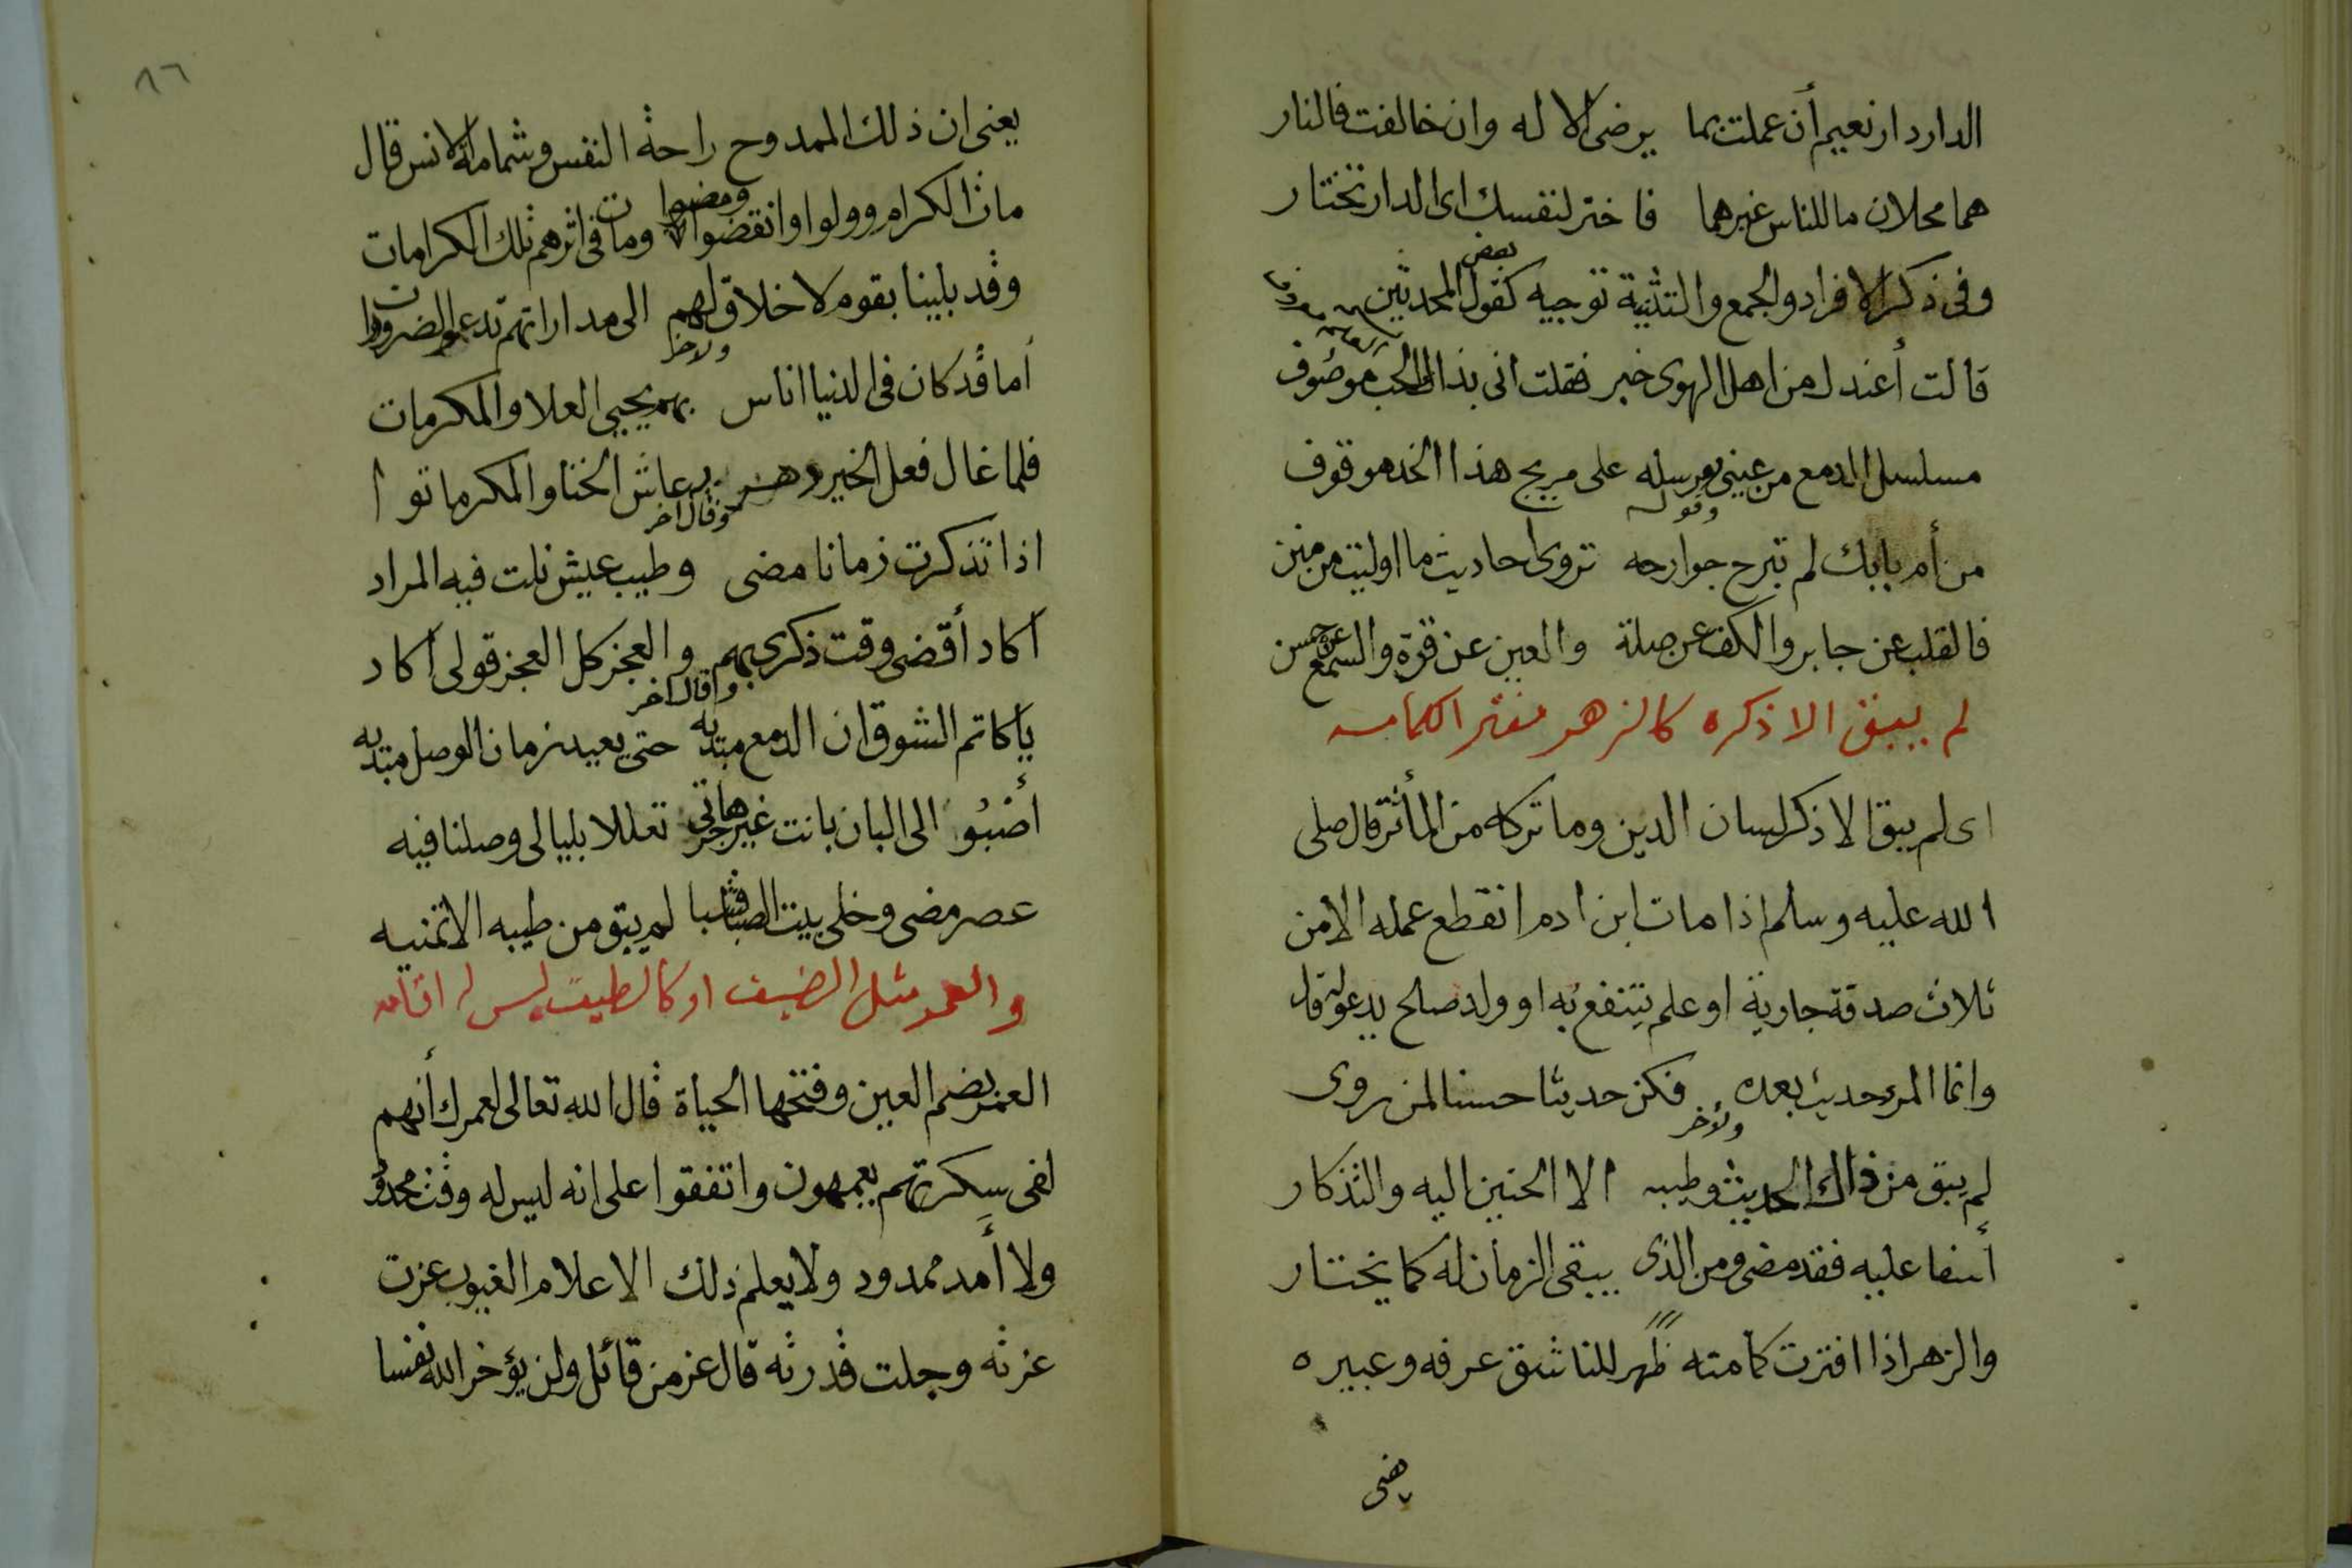 الدار دار نعيم أن عملت بما يرضى الاله وان خالفت فالنار
هما محلان ما للناس غيرهما فاختر لنفسك اى الدار تختار
وفى ذكر الافراد والجمع والتثنية توجيه كقول بعض المحدثين
قالت أعندك من اهل الهوى خبر فقلت انى بذاك الحب موصوف
مسلسل الدمع من عينى يرسله على مريج هذا الخد موقوف
وقوله
من أم بابك لم تبرح جوارحه تروى احاديث ما اوليت من منن
فالقلب عن جابر والكف عن صلة والعين عن قرة والسمع عن حسن
لم يبق الا ذكره كالزهر مفتر الكمامه
اى لم يبق الا ذكر لسان الدين وما تركه من المأثر قال صلى
الله عليه وسلم اذا مات ابن ادم انقطع عمله الا من
ثلاث صدقة جارية او علم ينتفع به او ولد صالح يدعو له قال
وانما المرء حديث بعده فكن حديثا حسنا لمن روى
ولأخر
لم يبق من ذاك الحديث وطيبه الا الحنين اليه والتذكار
أسفا عليه فقد مضى ومن الذى يبقى الزمان له كما يختار
والزهر اذا افترت كامته ظهر للناشق عرفه وعبيره
يعنى
٨٦
يعنى ان ذلك الممدوح راحة النفس وشمامة الانس قال
مات الكرام وولوا وانقضوا ومضوا ومات فى اثرهم تلك الكرامات
وقد بلينا بقوم لا خلاق لهم الى مداراتهم تدعو الضرورات
ولاخر
أما قد كان فى الدنيا اناس بهم يحيى العلا والمكرمات
فلما غال فعل الخير دهر به عاش الخنا والمكرماتوا
وقال اخر
اذا تذكرت زمانا مضى وطيب عيش نلت فيه المراد
أكاد أقضى وقت ذكرى بهم والعجز كل العجز قولى أكاد
وقال اخر
يا كاتم الشوق ان الدمع مبديه حتى يعيد زمان الوصل مبديه
أصبو الى البان بانت غير هاجرتى تعللا بليالى وصلنا فيه
عصر مضى وخلى بيت الصبا قشبا لم يبق من طيبه الا تمنيه
والعمر مثل الضيف او كالطيف ليس له اقامه
العمر بضم العين وفتحها الحياة قال الله تعالى لعمرك أنهم
لفى سكرتهم يعمهون واتفقوا على انه ليس له وقت محدود
ولا أمد ممدود ولا يعلم ذلك الا علام الغيوب عزت
عزته وجلت قدرته قال عز من قائل ولن يؤخر الله نفسا